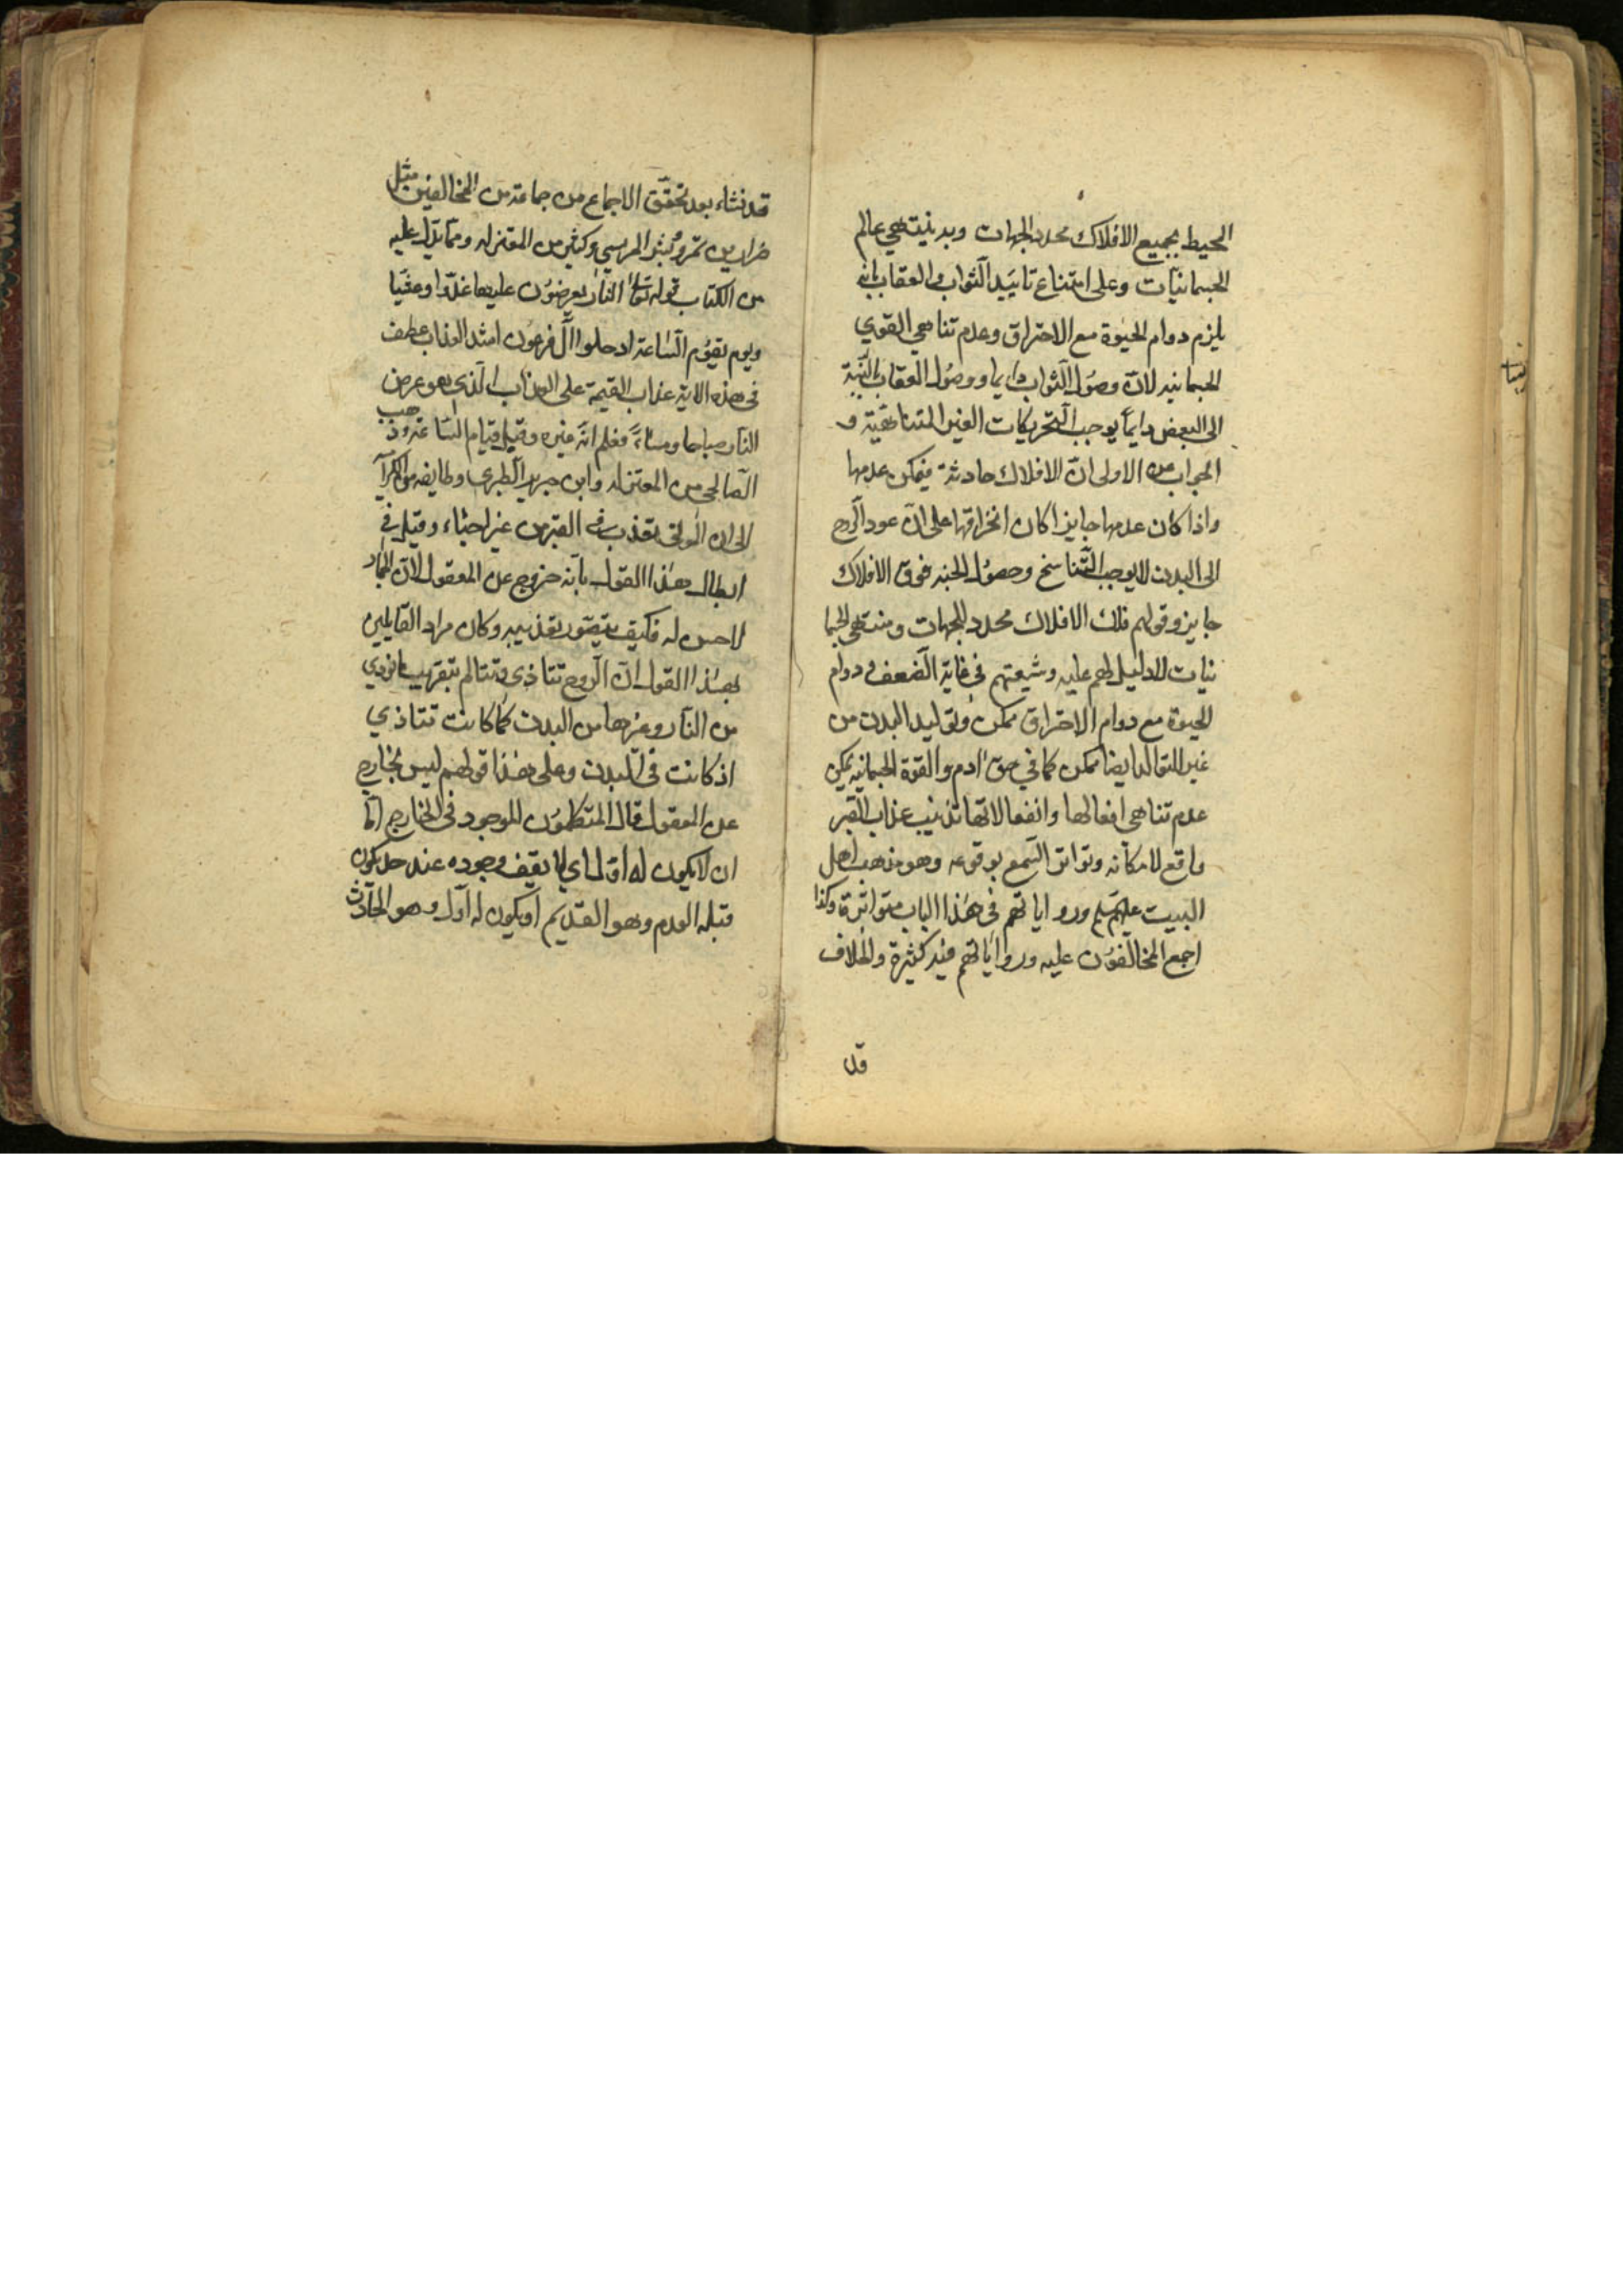 المحيط بجميع الافلاك محدد الجهات وبه ينتهي عالم
الجسمانيات وعلى امتناع تاييد الثواب والعقاب بانه
يلزم دوام الحيوة مع الاحتراق وعدم تناهي القوي
الجسمانيه لانّ وصول الثواب دايما ووصول العقاب بالنسبة
الى البعض دايماً يوجب التحريكات الغير المتناهية و
الجواب عن الاولى انّ الافلاك حادثة فيمكن عدمها
واذا كان عدمها جايزا كان انخراقها على انّ عود الروح
الى البدن لا يوجب التّناسخ وحصول الجنه فوق الافلاك
جايز وقولهم فلك الافلاك محدد للجهات ومنتهى الجسما
نيات لا دليل لهم عليه وشبهتهم في غاية الضعف ودوام
الحيوة مع دوام الاحتراق ممكن وتوليد البدن من
غير التوالد ايضا ممكن كما في حق ادم والقوة الجسمانيه يمكن
عدم تناهي افعالها وانفعالاتها تذنيب عذاب القبر
واقع لامكانه وتواتر السّمع بوقوعه وهو مذهب اهل
البيت عليهم سلم ورواياتهم في هذا الباب متواترة وكذا
اجمع المخالفون عليه ورواياتهم فيه كثيرة والخلاف
قد
قد نشاء بعد تحقّق الاجماع من جماعة من المخالفين مثل
ضرار بن عمرو وبشر المريسي وكثير من المعتزله وممّا يدلّ عليه
من الكتاب قوله تعالى النار يعرضون عليها غدّوا وعشيّا
ويوم يقوم السّاعة ادخلوا ال فرعون اشد العذاب عطف
في هذه الاية عذاب القيمة على العذاب الّذي هو عرض
النار صباحا ومساءً فعلم انّه غيره وقبل قيام السّاعة وذهب
الصالحي من المعتزله وابن جرير الطبري وطايفه من الكرا
الى ان الموتى تعذب في القبر من غير احياء وقيل في
ابطال هذا القول بانّه خروج عن المعقول لانّ الجماد
لا حس له فكيف يتصّور تعذيبه وكان مراد القايلين
بهذا القول انّ الرّوح تتاذى وتتالم بتقريب
من النار وغيرها من البدن كما كانت تتاذي
اذ كانت في البدن وعلى هذا قولهم ليس بخارج
عن المعقول قال المتكلمون الموجود في الخارج امّا
ان لا يكون له اوّل اي لا يقف وجوده عند حد يكون
قبله العدم وهو القديم او يكون له اوّل وهو الحادث